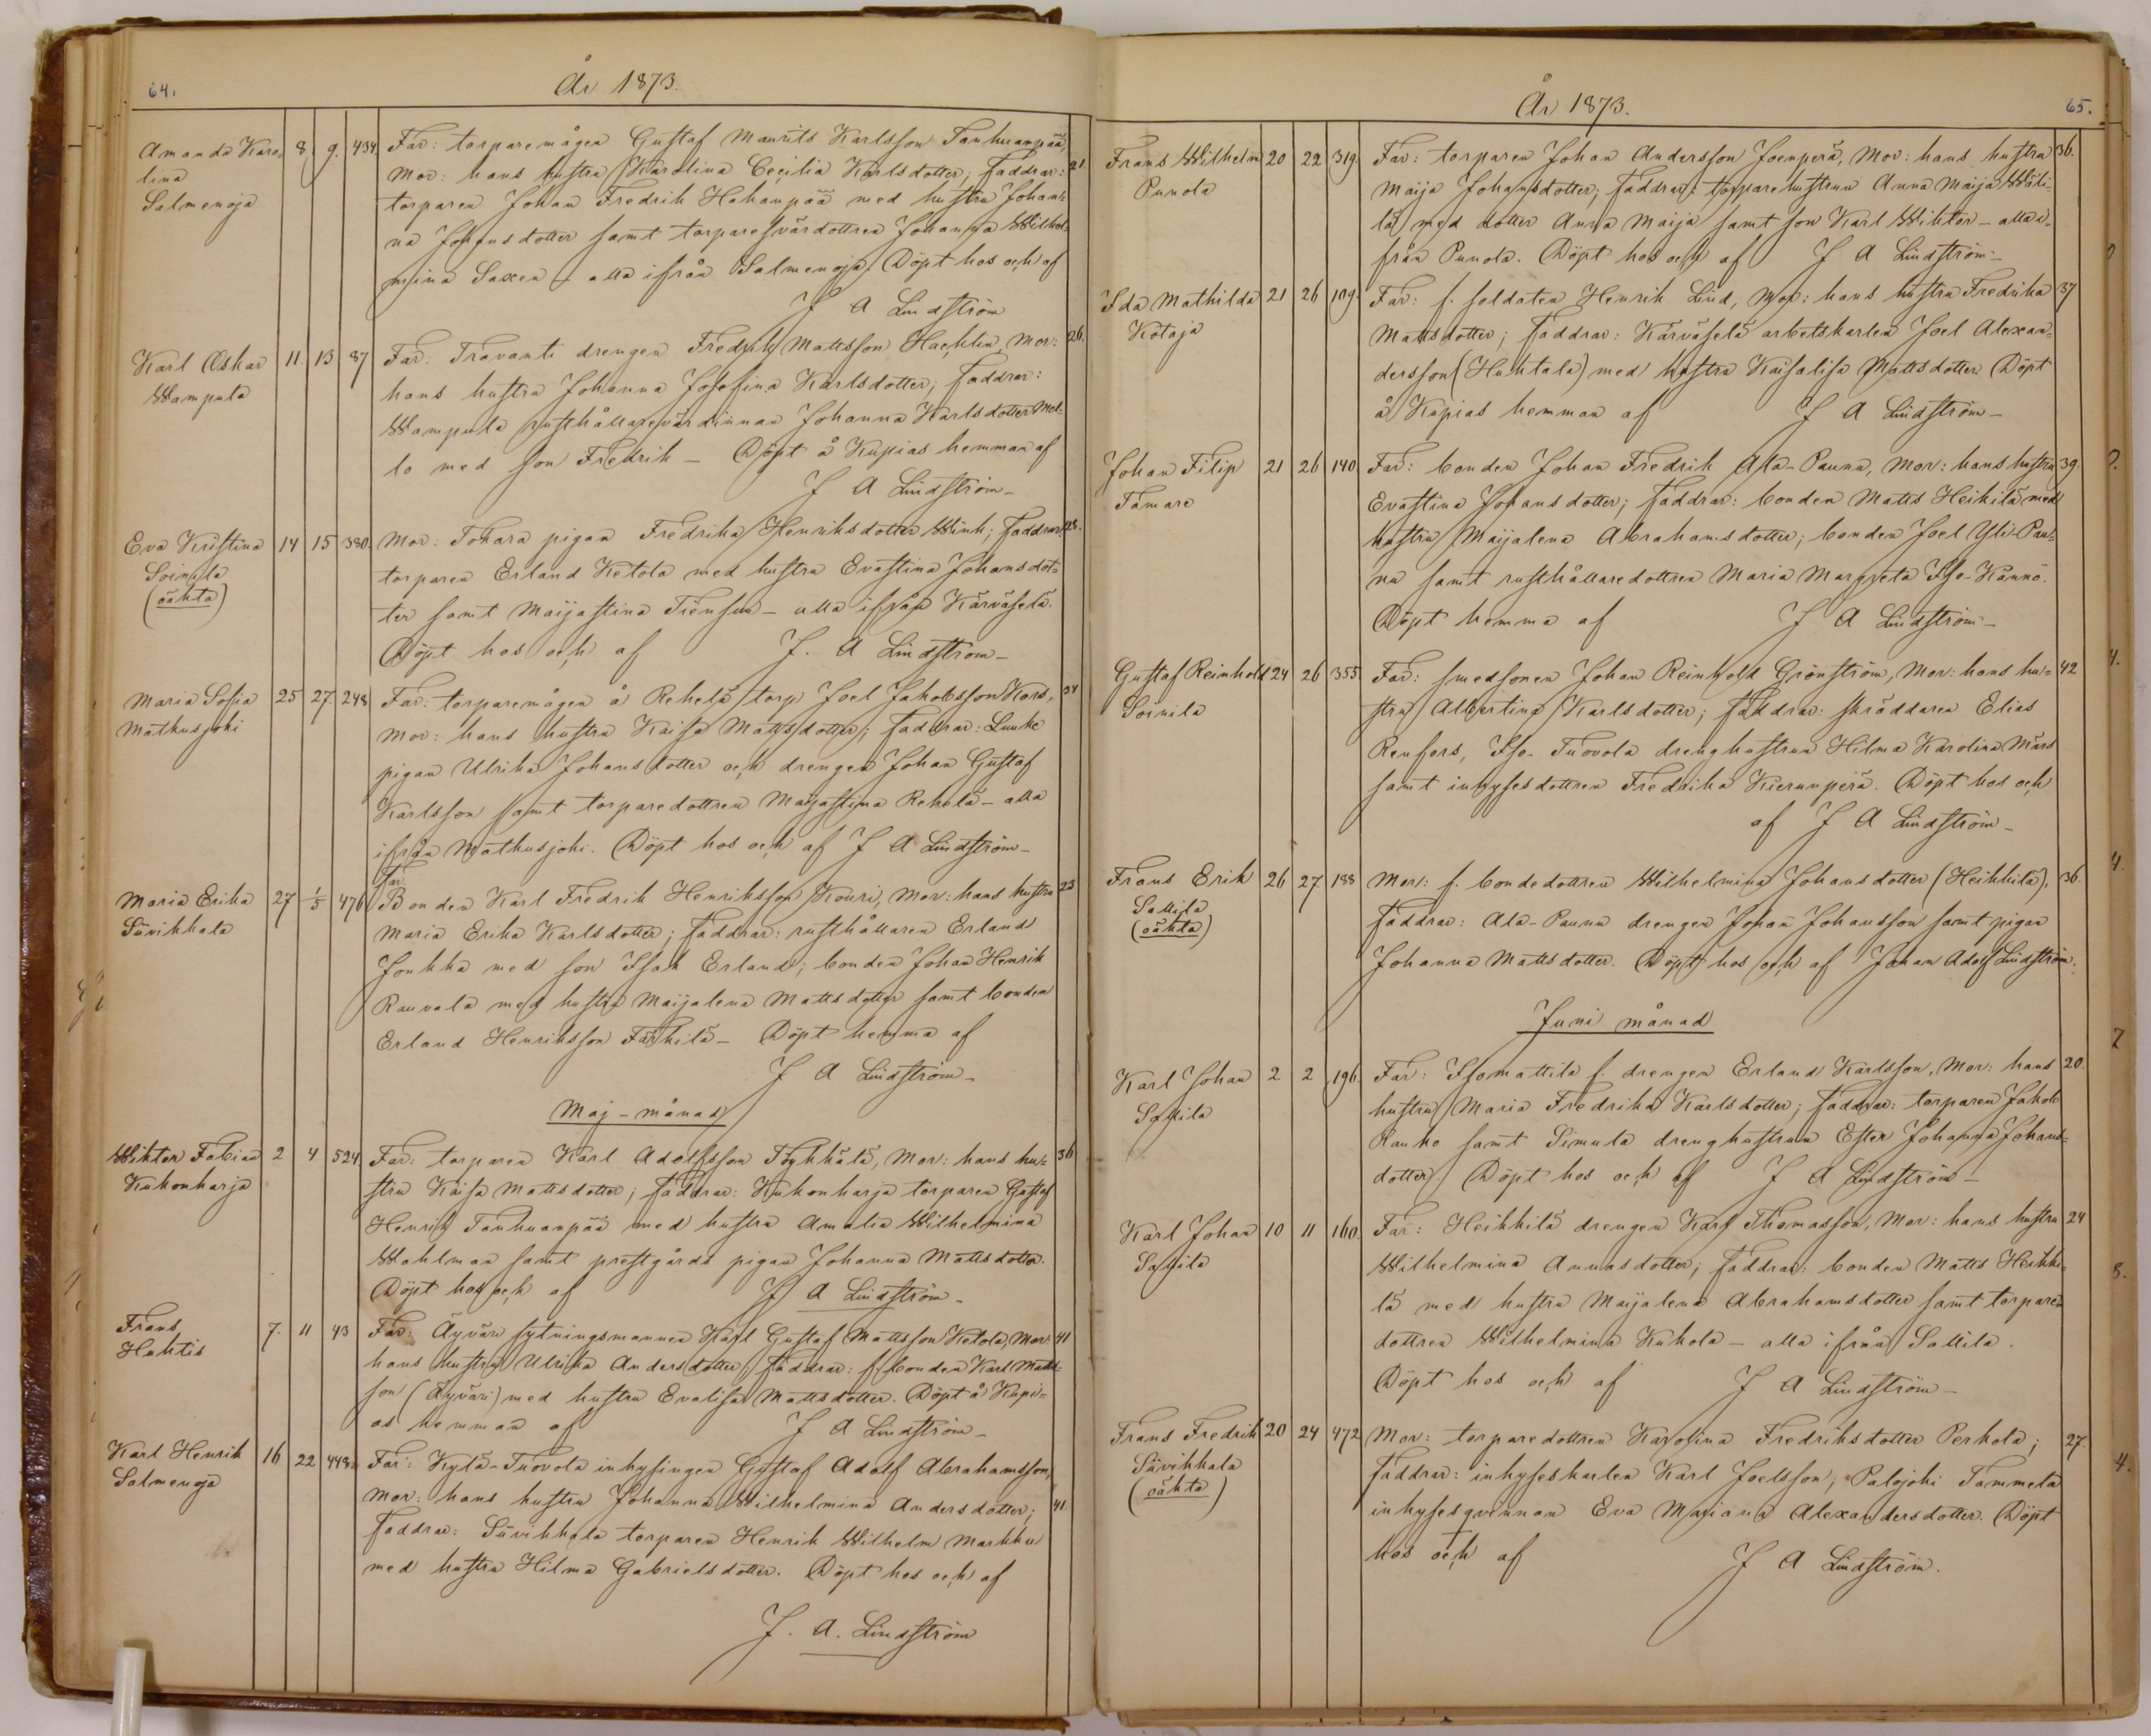 64.
År 1873.
Amanda Karo-
lina
Salmenoja
8 9. 434.
Far: torparemågen Gustaf Maurits Karlsson Tanhuanpää, 21
Mor: hans hustru Karolina Cecilia Karlsdotter; faddrar:
torparen Johan Fredrik Hakanpää med hustru Johan-
na Johansdotter samt torparesvärdottren Johanna Wilhel-
mina Saxen – alla ifrån Salmenoja. Döpt hos och af
J A Lindström
Karl Oskar
Wampula
11 13 87
Far: Travanti drengen Fredrik Mattsson Hachlin, Mor: 26.
hans hustru Johanna Josefina Karlsdotter; faddrar:
Wampula rusthållarevärdinnan Johanna Karlsdotter Mel-
lo med son Fredrik – Döpt å Kupias hemman af
J A Lindström –
Eva Kristina
Soinila
(oäkta)
14 15 380.
Mor: Tokara pigan Fredrika Henriksdotter Wink; faddrar: 28.
torparen Erland Ketola med hustru Evastina Johansdot-
ter samt Maijastina – alla ifrån Kärväselä.
Döpt hos och af J. A Lindström –
Maria Sofia
Matkusjoki
25 27. 248
Far: torparemågen å Rehelä torp Joel Jakobsson Kors, 34
Mor: hans hustru Kaisa Mattsdotter; faddrar:
pigan Ulrika Johansdotter och drengen Johan Gustaf
Karlsson samt torparedottren Maijastina Rehelä – alla
ifrån Matkusjoki. Döpt hos och af J A Lindström –
Maria Erika
Suvikkala
27 1/5 476
Far:
Bonden Karl Fredrik Henriksson Kouri, Mor: hans hustru 23
Maria Erika Karlsdotter; faddrar: rusthållaren Erland
Joukka med son Isak Erland; bonden Johan Henrik
Rauvala med hustru Maijalena Mattsdotter samt bonden
Erland Henriksson Färkilä – Döpt hemma af
J A Lindström –
Maj – månad
Wiktor Fabian
Kukonharja
2 4 524
Far: torparen Karl Adolfsson Töykkälä, Mor: hans hu- 36
stru Kaisa Mattsdotter; faddrar: Kukonharja torparen Gustaf
Henrik Tanhuanpää med hustru Amalia Wilhelmina
Wahlman samt prestgårds pigan Johanna Mattsdotter.
Döpt hos och af J A Lindström –
Frans
Huhtis
7. 11 43
Far: Äyväri sytningsmannen Karl Gustaf Mattsson Ketola, Mor: 41
hans hustru Ulrika Andersdotter; faddrar: f. bonden Karl Matts-
son (Äyväri) med hustru Evalisa Mattsdotter. Döpt å Kupi-
as hemman af J A Lindström –
Karl Henrik
Salmenoja
16 22 448.
Far: Kylä-Tuovola inhysingen Gustaf Adolf Abrahamsson,
Mor: hans hustru Johanna Wilhelmina Andersdotter; 41
faddrar: Suvikkala torparen Henrik Wilhelm Markku
med hustru Hilma Gabrielsdotter. Döpt hos och af
J. A. Lindström
År 1873.
65.
Frans Wilhelm
Punola
20 22 319.
Far: torparen Johan Andersson Joenperä, Mor: hans hustru 36.
Maija Johansdotter; faddrar: torparehustrun Anna Maija Wäli-
lä med dotter Anna Maija samt son Karl Wiktor – alla i-
från Punola. Döpt hos och af J A Lindström –
Ida Mathilda
Kotaja
21 26 109.
Far: f. soldaten Henrik Lind, Mor: hans hustru Fredrika 37
Mattsdotter; faddrar: Kärväselä arbetskarlen Joel Alexan-
dersson (Huhtala) med hustru Kaisalisa Mattsdotter. Döpt
å Kupias hemman af J A Lindström –
Johan Filip
Tamare
21 26 140
Far: bonden Johan Fredrik Ala-Pauna, Mor: hans hustru 39.
Evastina Johansdotter; faddrar: bonden Matts Heikilä med
hustru Maijalena Abrahamsdotter; bonden Joel Yli-Pau-
na samt rusthållaredottren Maria Margreta Iso-Kännö.
Döpt hemma af J A Lindström –
Gustaf Reinhold
Soinila
24 26 355.
Far: smedsonen Johan Reinhold Grönström, Mor: hans hu- 42
stru Albertina Karlsdotter; faddrar: skräddaren Elias
Renfors, Iso-Tuovola drenghustrun Hilma Karolina Mårs
samt inhysesdottren Fredrika Kierunperä. Döpt hos och
af J A Lindström –
Frans Erik
Sallila
(oäkta)
26 27 188
Mor: f. bondedottren Wilhelmina Johansdotter (Heikkilä), 36.
faddrar: Ala-Pauna drengen Johan Johansson samt pigan
Johanna Mattsdotter. Döpt hos och af Johan Adolf Lindström.
Juni månad
Karl Johan
Sallila
2 2 196.
Far: Isomattila f. drengen Erland Karlsson, Mor: hans 20.
hustru Maria Fredrika Karlsdotter; faddrar: torparen Jakob
Rauko samt Simula drenghustrun Ester Johanna Johans-
dotter. Döpt hos och af J A Lindström –
Karl Johan
Sallila
10 11 160.
Far: Heikkilä drengen Karl Thomasson, Mor: hans hustru 24
Wilhelmina Annasdotter; faddrar: bonden Matts Heikki-
lä med hustru Maijalena Abrahamsdotter samt torpare-
dottren Wilhelmina Kukola – alla ifrån Sallila.
Döpt hos och af J A Lindström –
Frans Fredrik
Suvikkala
(oäkta)
20 24 472
Mor: torparedottren Karolina Fredriksdotter Perkola; 27.
faddrar: inhyseskarlen Karl Joelsson; Palojoki Tammela
inhysesqvinnan Eva Mariana Alexandersdotter. Döpt
hos och af J A Lindström.